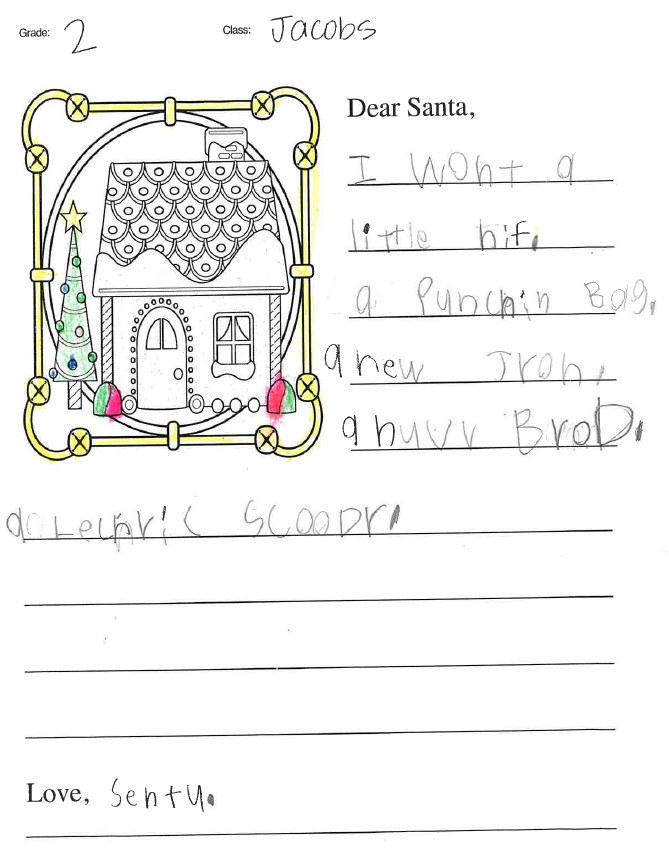 Grade: 2 Class: Jacobs
Dear Santa,
I wont a
little nif.
a Punchin Bag.
a new Jron.
a huvr BroD.
a Lechric ScooDr.
Love, Sentu.